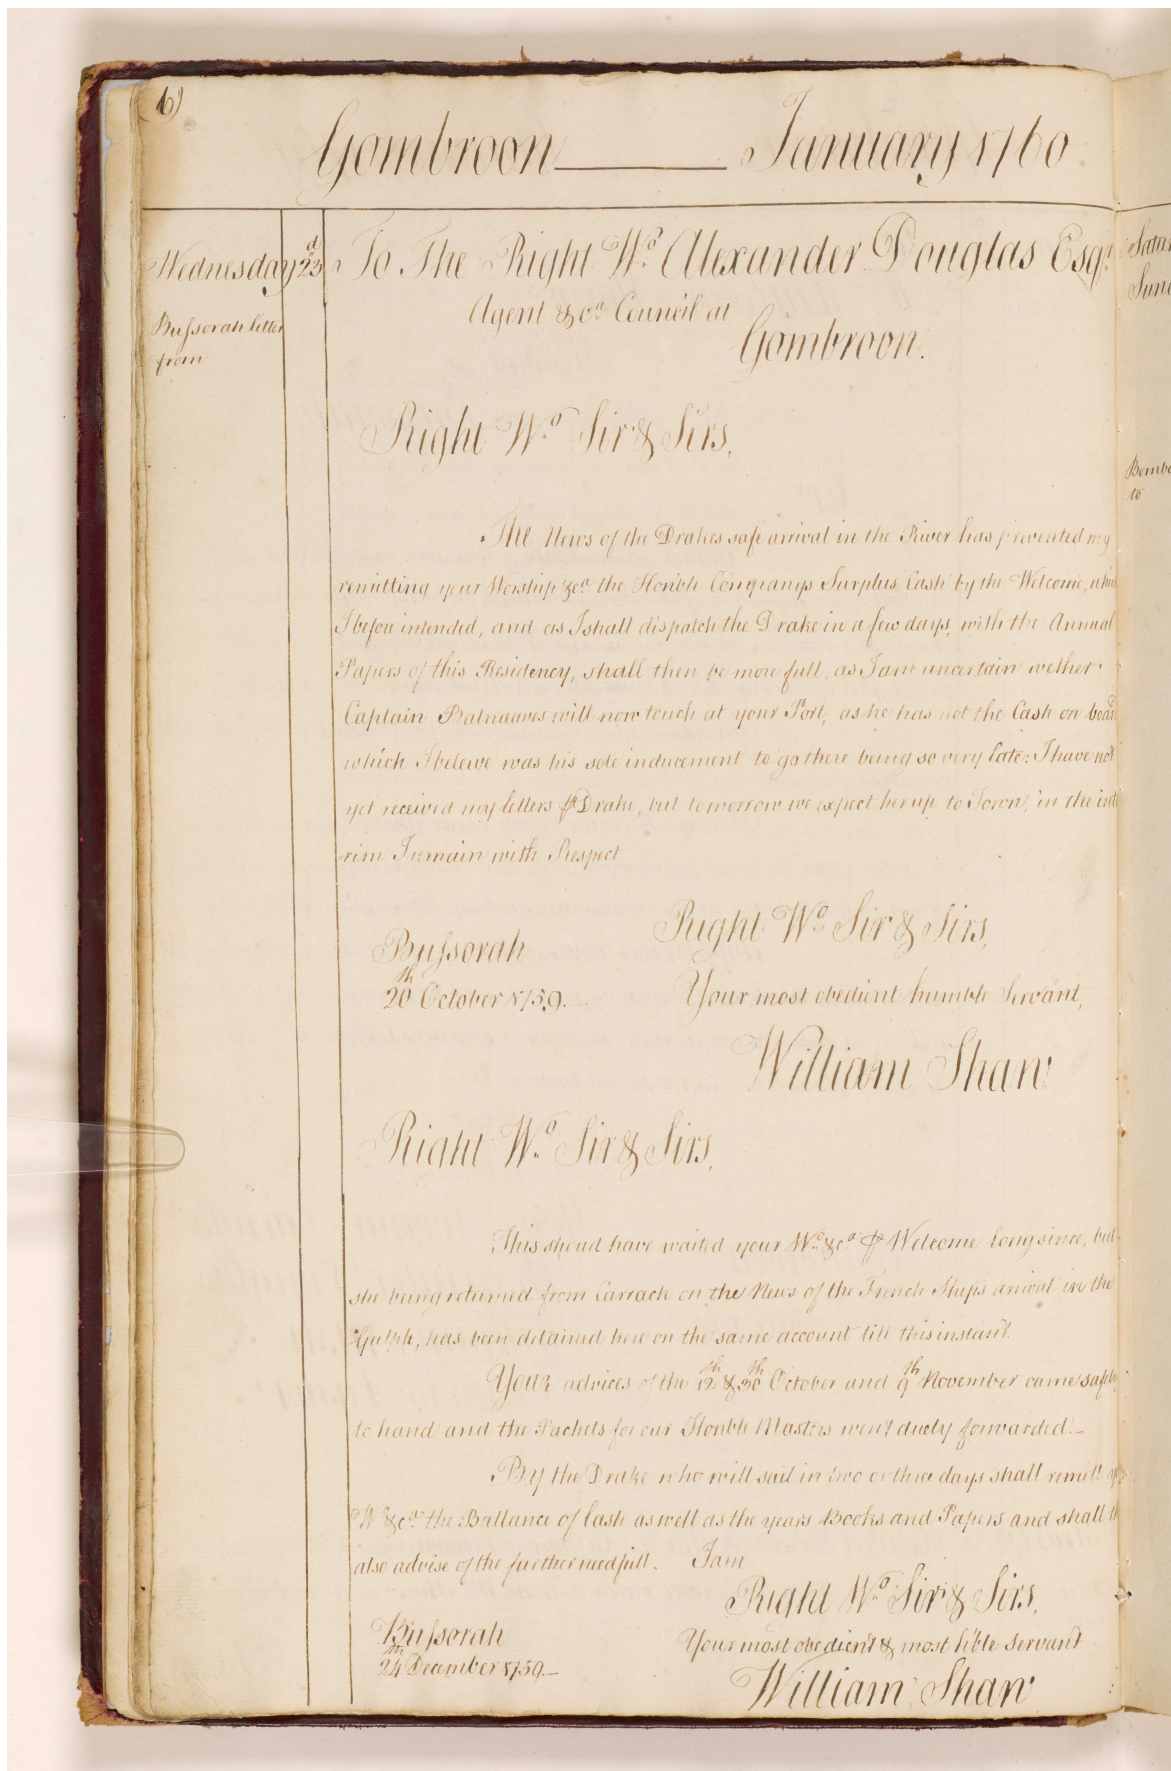 6)
Gombroon January 1760
Wednesday 23d To The Right Wo. Alexander Douglas Esqr.
Agent &ca. Council at
Bussorah letter
from
Gombroon.
Right Wo. Sir & Sirs,
The News of the Drakes safe arrival in the River has prevented my
remitting your Worship &ca. the Honble Companys Surplus Cash by the Welcome, which
I before intended, and as I shall dispatch the Drake in a few days, with the Annual
Papers of this Residency, shall then be more full, as I am uncertain wether
Captain Balnaaves will now touch at your Port, as he has not the Cash on board
which I beleive was his sole inducement to go there being so very late: I have not
yet received my letters ⅌ Drake, but to morrow we expect her up to Town, in the inte
-rim I remain with Respect
Right Wo. Sir & Sirs,
Bussorah
20th October 1759. Your most obedient humble Servant,
William Shaw
Right Wo. Sir & Sirs,
This shoud have waited your Wo. &ca. ⅌ Welcome long since, but
she being returned from Carrack on the News of the French Ships arrival in the
Gulph, has been detained here on the same account till this instant.
Your advices of the 12th & 30th October and 9th November came safely
to hand and the Packets for our Honble Masters were duely forwarded.-
By the Drake who will sail in two or three days shall remitt
W &ca. the Ballance of Cash as well as the years Books and Papers and shall
also advise of the further needfull. I am
Right Wo. Sir & Sirs,
Bussorah
24th December 1759.- Your most obedient & most hble Servant
William Shaw
Satur
Sun
Bomba
to